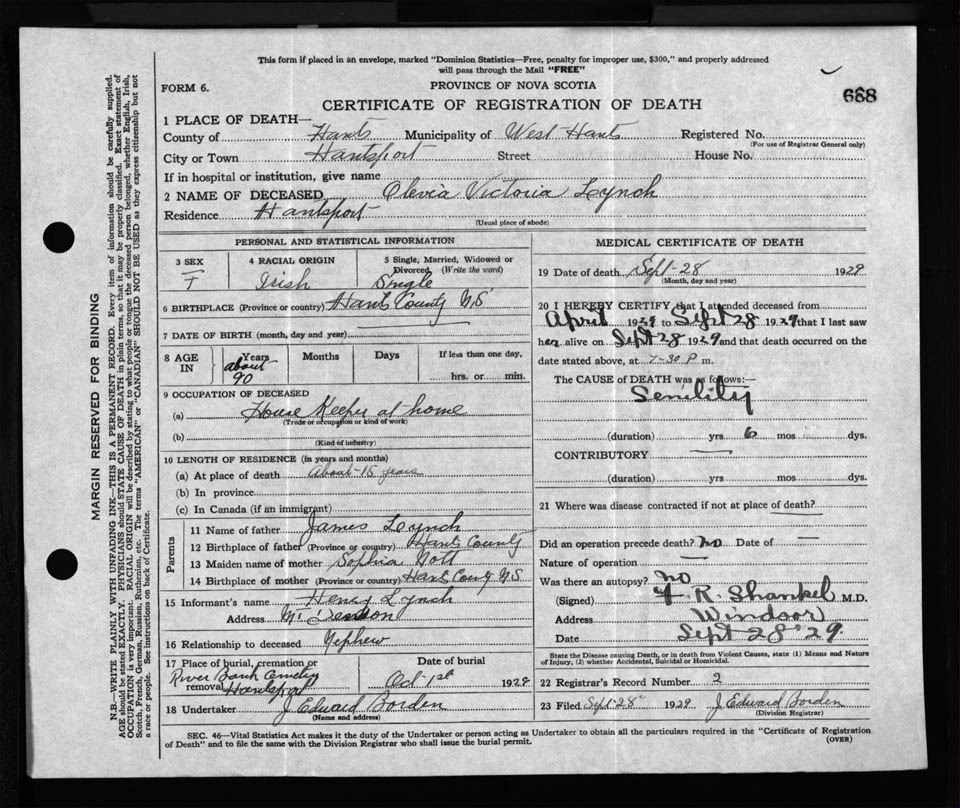 This form if placed in an envelope, marked "Dominion Statistics—Free, penalty for improper use, $300," and properly addressed
will pass through the Mail "FREE"
FORM 6.
PROVINCE OF NOVA SCOTIA
668
CERTIFICATE OF REGISTRATION OF DEATH
1 PLACE OF DEATH—
County of Hants Municipality of West Hants Registered No.
(For use of Registrar General only)
City or Town Hantsport Street House No.
If in hospital or institution, give name
2 NAME OF DECEASED Olevia Victoria Lynch
Residence Hantsport
(Usual place of abode)
PERSONAL AND STATISTICAL INFORMATION
3 SEX 4 RACIAL ORIGIN 5 Single, Married, Widowed or
Divorced (Write the word)
F Irish Single
6 BIRTHPLACE (Province or country) Hants County N.S
7 DATE OF BIRTH (month, day and year)
8 AGE IN Years Months Days If less than one day,
about 90 hrs. or min.
9 OCCUPATION OF DECEASED
(a) House Keeper at home
(Trade or occupation or kind of work)
(b)
(Kind of industry)
10 LENGTH OF RESIDENCE (in years and months)
(a) At place of death About-15 years
(b) In province
(c) In Canada (if an immigrant)
Parents
11 Name of father James Lynch
12 Birthplace of father (Province or country) Hants County
13 Maiden name of mother Sophia
14 Birthplace of mother (Province or country) Hants County N.S
15 Informant's name Henry Lynch
Address
16 Relationship to deceased Nephew
17 Place of burial, cremation or Date of burial
River Bank Cemetery
removal Hantsport Oct-1st 1929
18 Undertaker J Edward Borden
(Name and address)
MEDICAL CERTIFICATE OF DEATH
19 Date of death Sept-28 1929
(Month, day and year)
20 I HEREBY CERTIFY that I attended deceased from
April 1929 to Sept 28 1929 that I last saw
her alive on Sept 28 1929 and that death occurred on the
date stated above, at 7-30 P m.
The CAUSE of DEATH was as follows:—
Senility
(duration) yrs 6 mos dys.
CONTRIBUTORY —
(duration) yrs mos dys.
21 Where was disease contracted if not at place of death? —
Did an operation precede death? no Date of —
Nature of operation —
Was there an autopsy? no
(Signed) R. Shankel M.D.
Address Windsor
Date Sept 28-'29.
State the Disease causing Death, or in death from Violent Causes, state (1) Means and Nature
of Injury, (2) whether Accidental, Suicidal or Homicidal.
22 Registrar's Record Number 2
23 Filed Sept-28 1929 J Edward Borden
(Division Registrar)
SEC. 46—Vital Statistics Act makes it the duty of the Undertaker or person acting as Undertaker to obtain all the particulars required in the "Certificate of Registration
of Death" and to file the same with the Division Registrar who shall issue the burial permit.
(OVER)
MARGIN RESERVED FOR BINDING
N.B.—WRITE PLAINLY WITH UNFADING INK—THIS IS A PERMANENT RECORD. Every item of information should be carefully supplied.
AGE should be stated EXACTLY. PHYSICIANS should STATE CAUSE OF DEATH in plain terms, so that it may be properly classified. Exact statement of
OCCUPATION is very important. RACIAL ORIGIN will be described by stating to what people or tongue the deceased person belonged, whether English, Irish,
Scotch, French, German, Russian, Ruthenian, etc. The terms "AMERICAN" or "CANADIAN" SHOULD NOT BE USED as they express citizenship but not
a race or people. See instructions on back of Certificate.